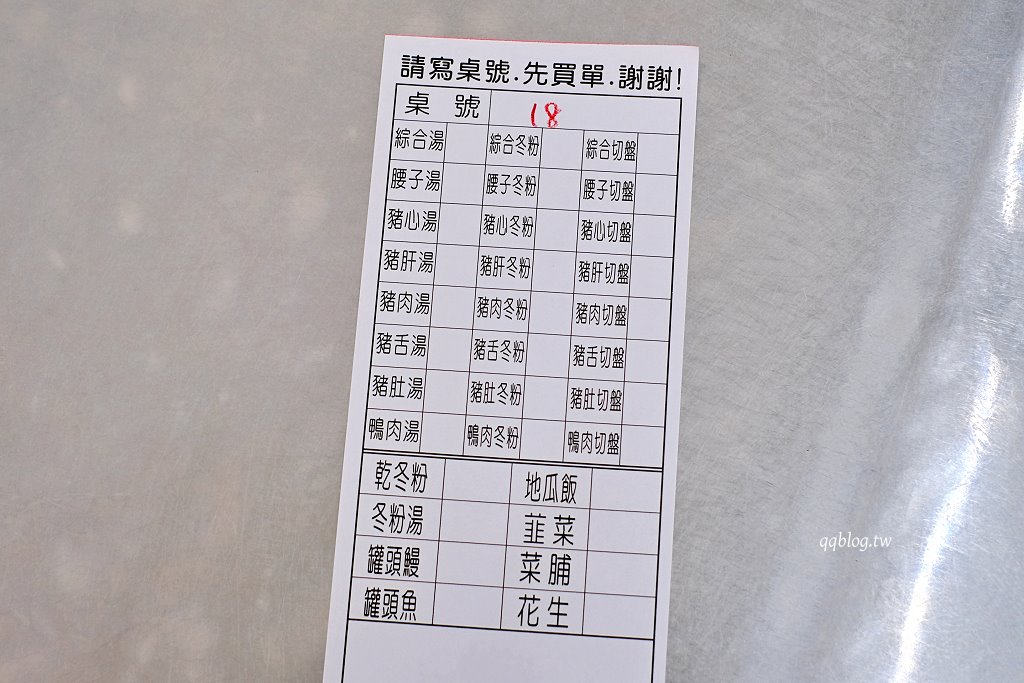 請寫桌號.先買單.謝謝!
桌號 18
綜合湯 綜合冬粉 綜合切盤
腰子湯 腰子冬粉 腰子切盤
豬心湯 豬心冬粉 豬心切盤
豬肝湯 豬肝冬粉 豬肝切盤
豬肉湯 豬肉冬粉 豬肉切盤
豬舌湯 豬舌冬粉 豬舌切盤
豬肚湯 豬肚冬粉 豬肚切盤
鴨肉湯 鴨肉冬粉 鴨肉切盤
乾冬粉 地瓜飯
冬粉湯 韮菜
罐頭鰻 菜脯
罐頭魚 花生
qqblog.tw